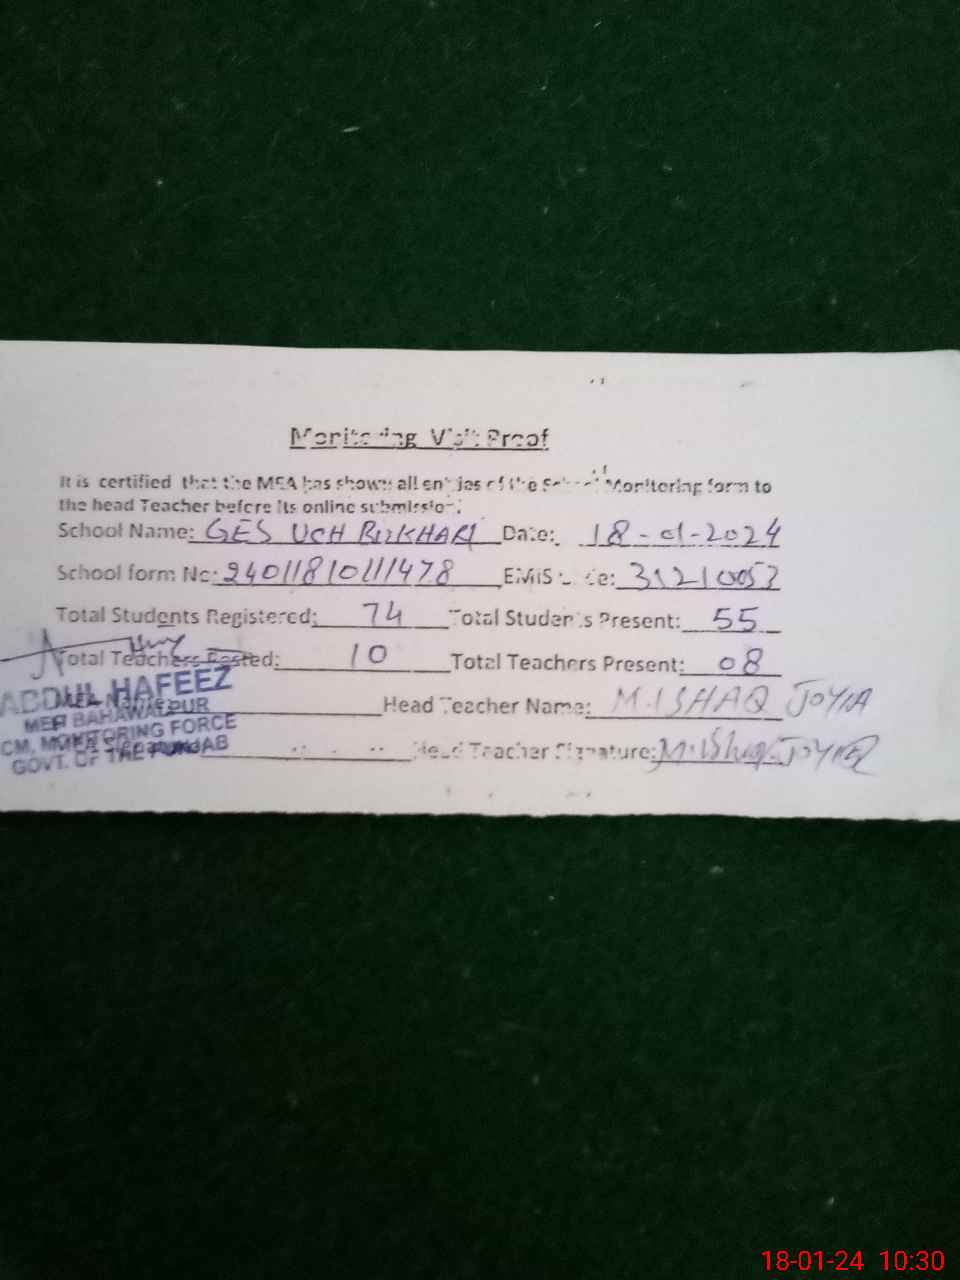 Monitoring Visit Proof
It is certified that the MEA has shown all entries of the School Monitoring form to
the head Teacher before its online submission.
School Name: GES UCH BUKHARI Date: 18-01-2024
School form No: 24011810111478 EMIS Code: 31210053
Total Students Registered: 74 Total Students Present: 55
Total Teachers Posted: 10 Total Teachers Present: 08
ABDUL HAFEEZ Head Teacher Name: M.ISHAQ JOYIA
MEA BAHAWALPUR
CM, MONITORING FORCE Head Teacher Signature: M.Ishaq JOYIA
GOVT. OF THE PUNJAB
18-01-24 10:30